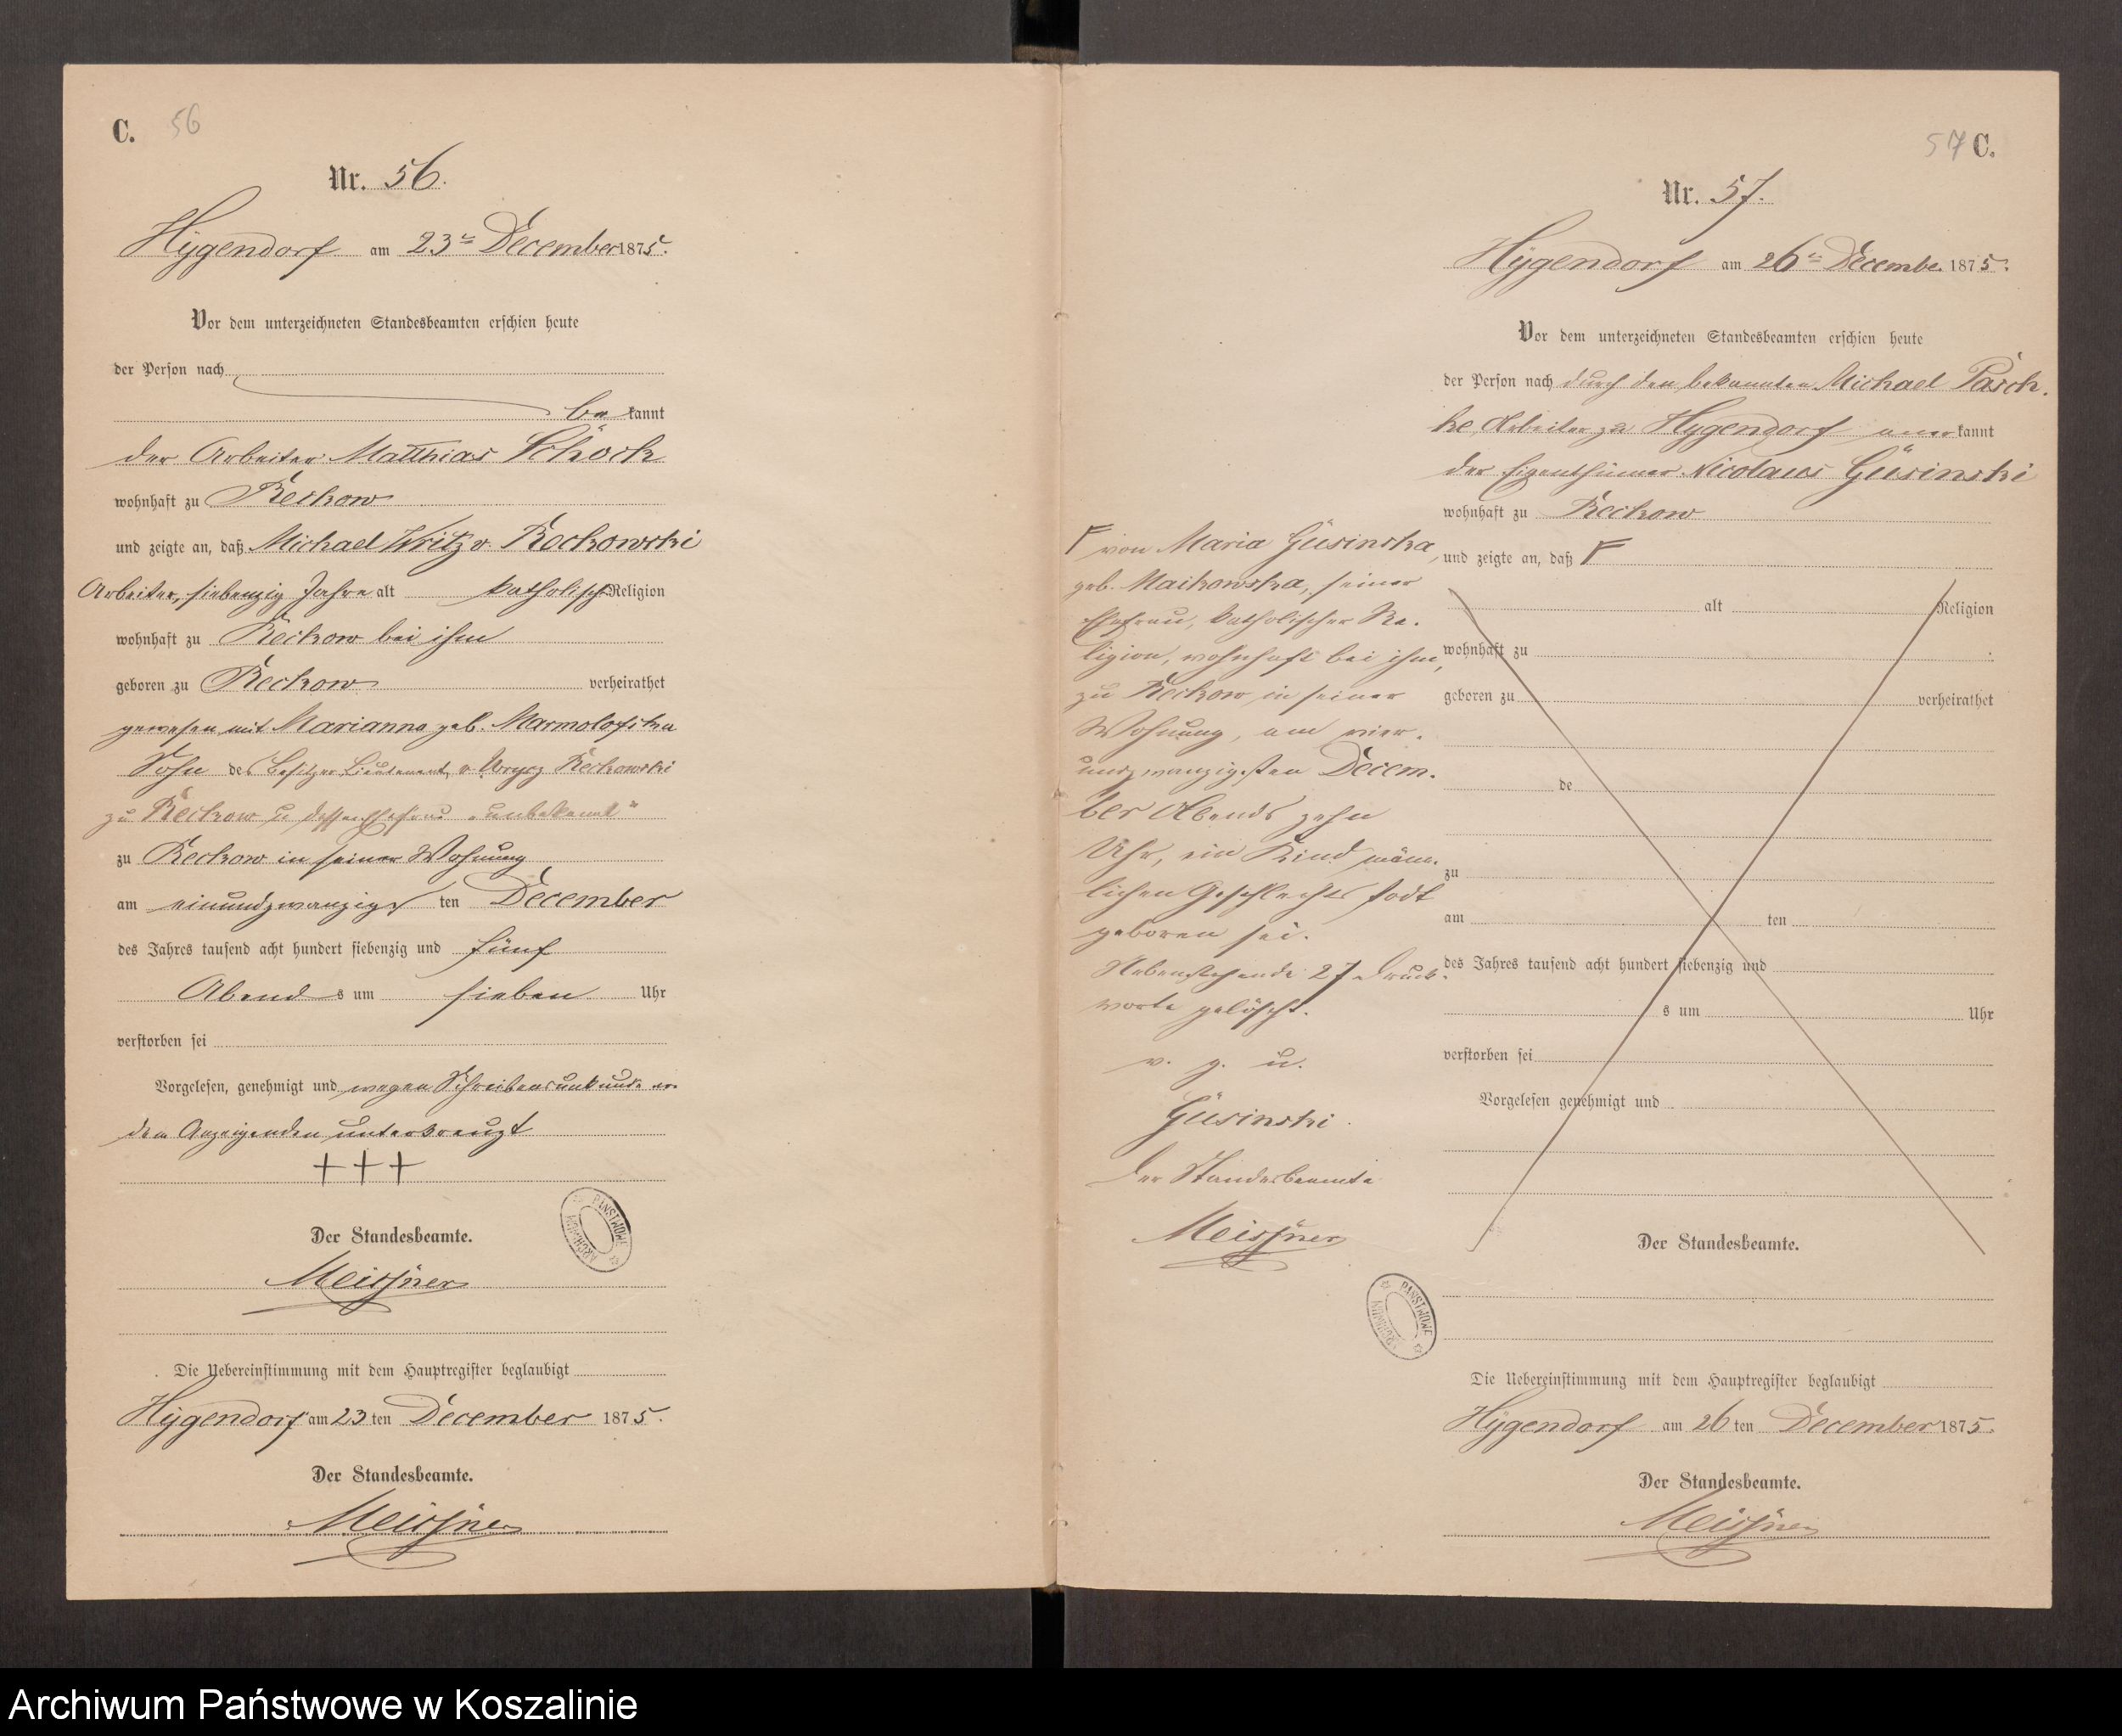 C. 56
Nr. 56.
Hygendorf am 23ten December 1875.
Vor dem unterzeichneten Standesbeamten erschien heute
der Person nach
be kannt
der Arbeiter Matthias Schöck
wohnhaft zu Reckow
und zeigte an, daß Michael Writz v. Reckowski
Arbeiter, siebenzig Jahre alt katholisch Religion
wohnhaft zu Reckow bei ihm
geboren zu Reckow verheirathet
gewesen mit Marianna geb.
Sohn des Besitzer Lieutenant v. Wrycz Reckowski
zu Reckow u dessen Ehefrau „unbekannt"
zu Reckow in seiner Wohnung
am einundzwanzigs ten December
des Jahres tausend acht hundert siebenzig und fünf
Abend s um sieben Uhr
verstorben sei
Vorgelesen, genehmigt und wegen Schreibensunkunde
dem Anzeigenden unterkreuzt
+++
Der Standesbeamte.
Meissner
PAŃSTWOWE ARCHIWUM
Die Uebereinstimmung mit dem Hauptregister beglaubigt
Hygendorf am 23 ten December 1875.
Der Standesbeamte.
Meissner
57 C.
Nr. 57.
Hygendorf am 26ten Decembe. 1875.
Vor dem unterzeichneten Standesbeamten erschien heute
der Person nach durch den bekannten Michael Pasch-
ke, Arbeiter zu Hygendorf aner kannt
der Eigenthümer Nicolaus Güsinski
wohnhaft zu Reckow
und zeigte an, daß F
alt Religion
wohnhaft zu
geboren zu verheirathet
de
zu
am ten
des Jahres tausend acht hundert siebenzig und
s um Uhr
verstorben sei
Vorgelesen genehmigt und
F von Maria Güsinska,
geb. Maikowska, seiner
Ehefrau, katholischer Re-
ligion, wohnhaft bei ihm,
zu Reckow in seiner
Wohnung, am vier-
undzwanzigsten Decem-
ber Abends zehn
Uhr, ein Kind männ-
lichen Geschlechts todt
geboren sei.
Nebenstehende 27 Druck-
worte gelöscht.
v. g. u.
Güsinski
Der Standesbeamte
Meissner
PAŃSTWOWE ARCHIWUM
Der Standesbeamte.
Die Uebereinstimmung mit dem Hauptregister beglaubigt
Hygendorf am 26 ten December 1875.
Der Standesbeamte.
Meissner
Archiwum Państwowe w Koszalinie